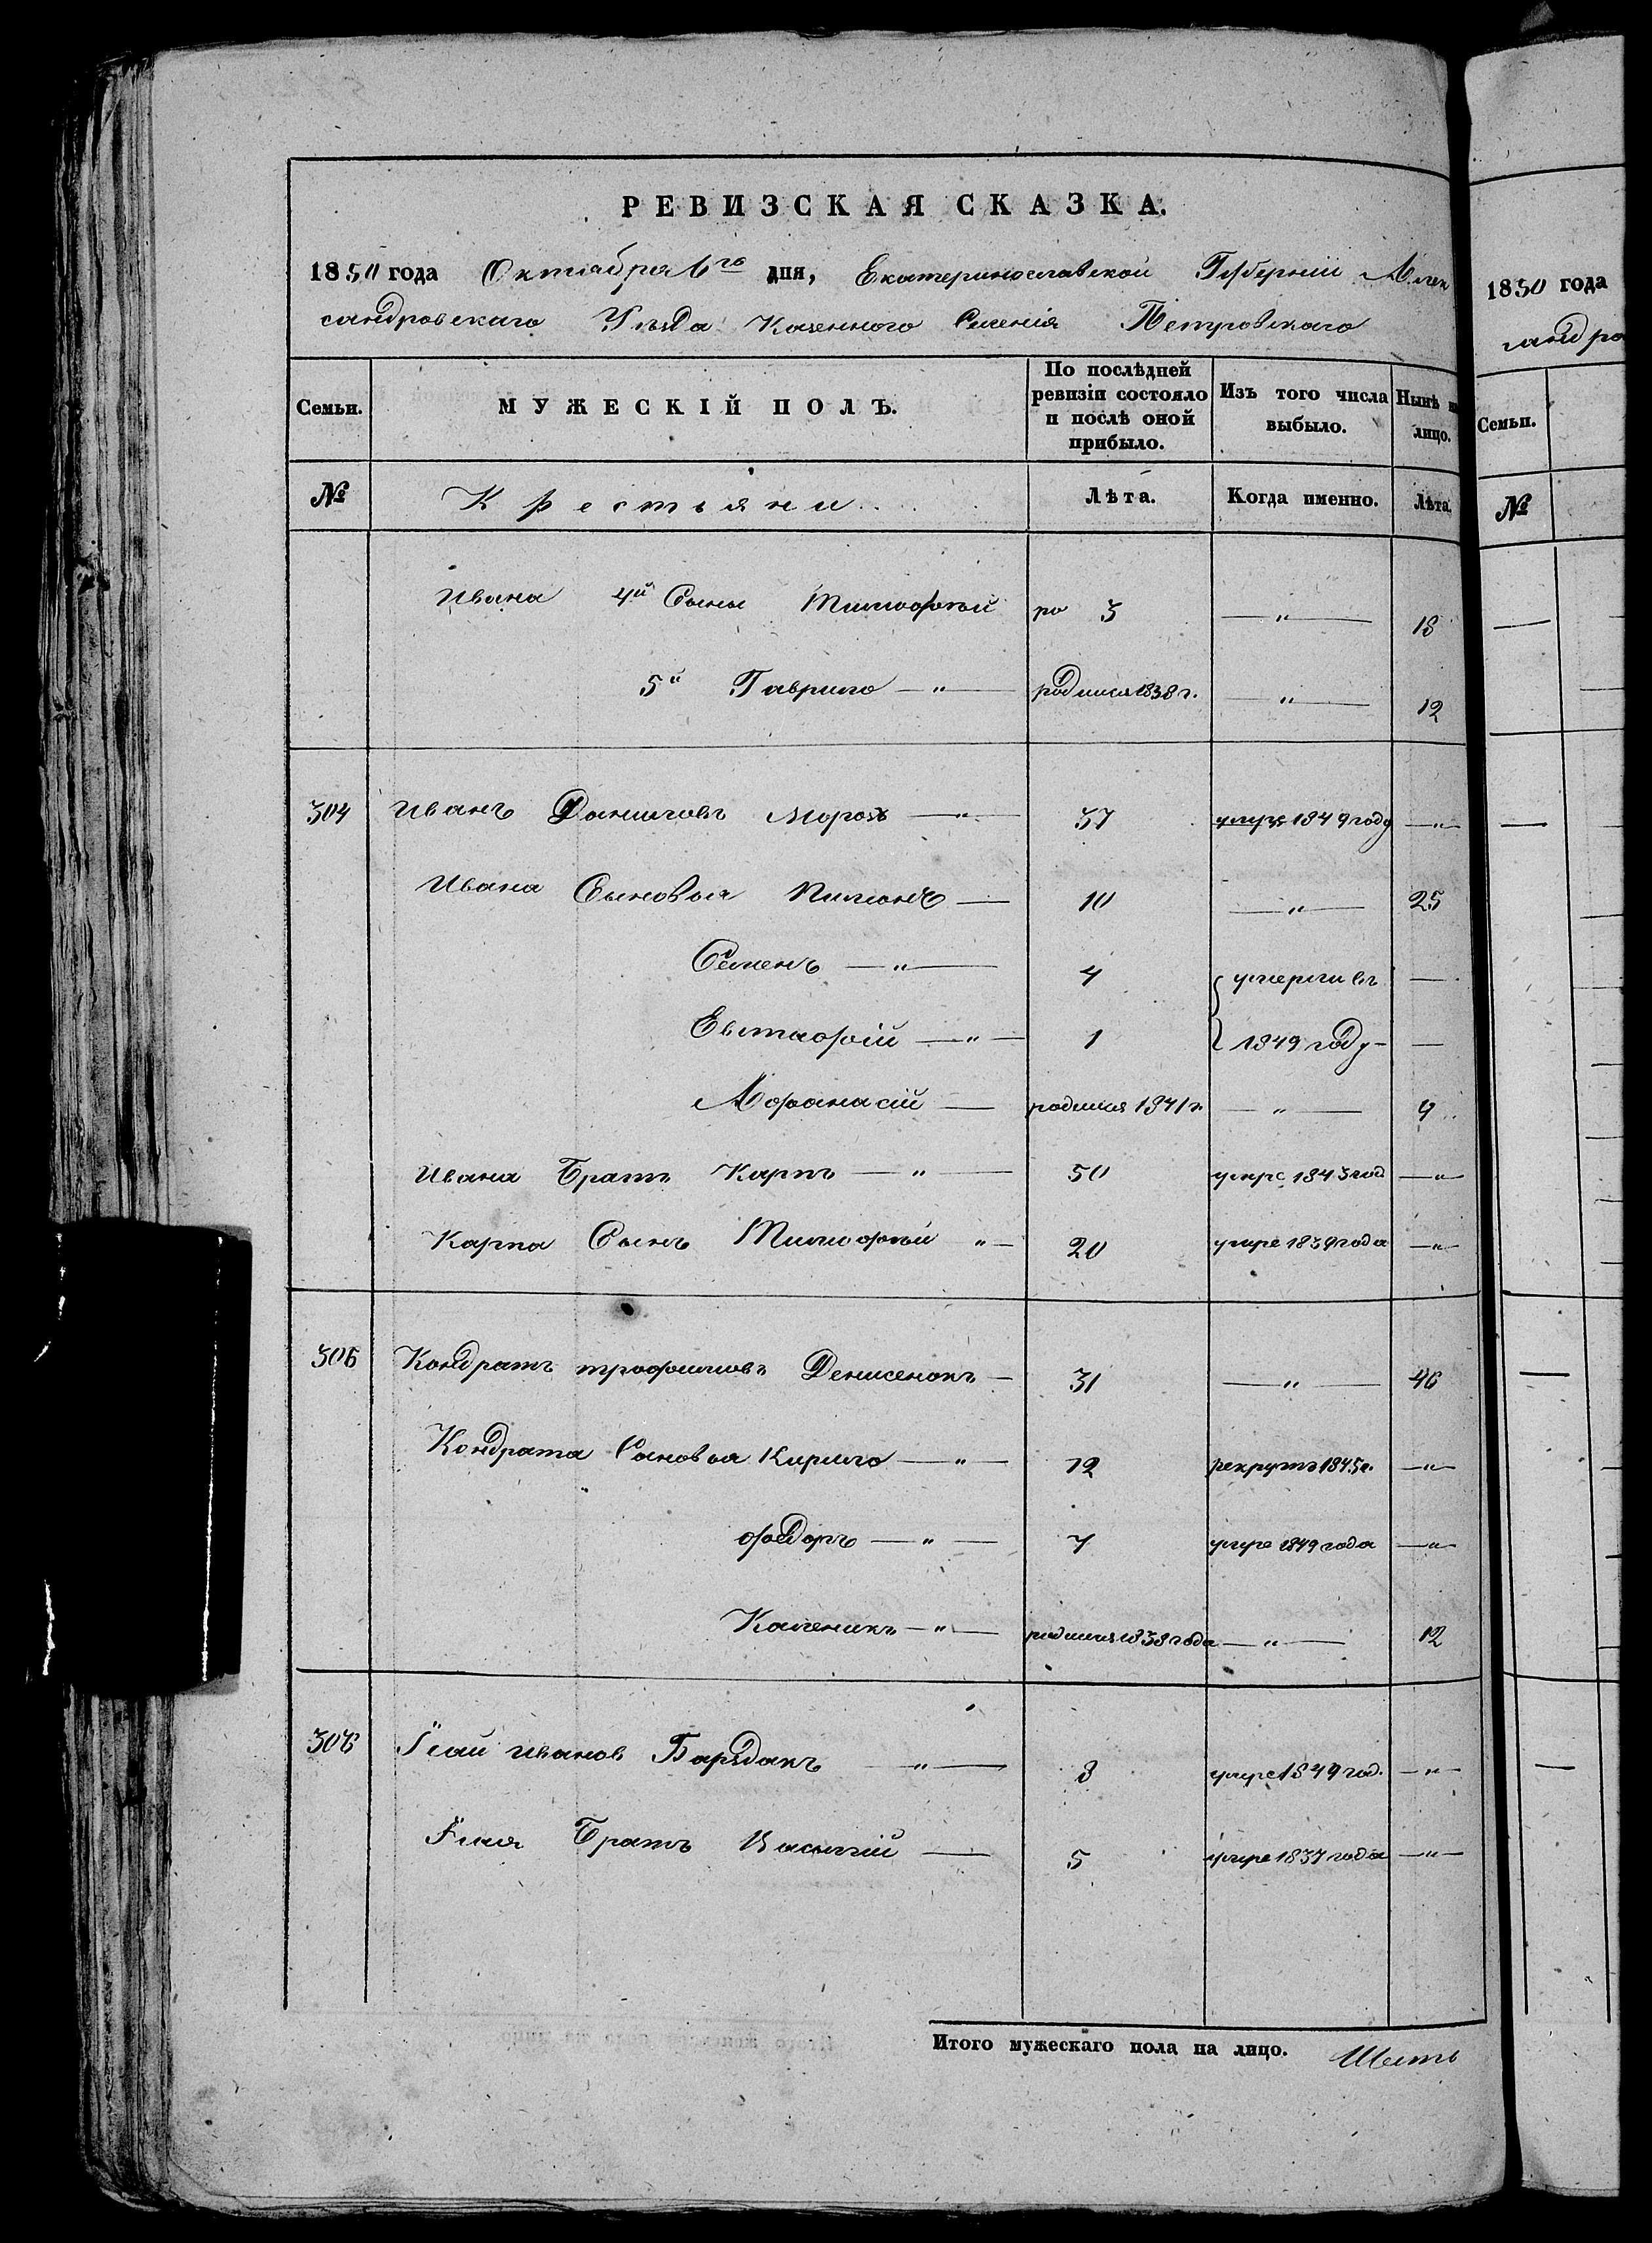 РЕВИЗСКАЯ СКАЗКА.
1850 года Октября 6го дня, Екатеринославской Губерніи Алек
сандровскаго Уѣзда Казенного Селенія Петровскаго
Семьи.
МУЖЕСКІЙ ПОЛЪ.
По послѣдней ревизіи состояло и послѣ оной прибыло.
Изъ того числа выбыло.
Нынѣ на лицо.
№ Крестьяни Лѣта. Когда именно. Лѣта.
Ивана 4й Сынъ Тимофѣй 3 — " — 18
5й Гаврило — " — родился 1838 г. — " — 12
304 Иванъ Даниловъ Морозъ — " — 37 умре 1849 году — " —
Ивана Сыновья Пименъ — 10 — " — 25
Семенъ — " — 4 умерли въ —
Евстафій — " — 1 1849 году — —
Афанасій — родился 1841 г. — " — 9
Ивана Братъ Карпъ — " — 50 умре 1843 год — " —
Карпа Сынъ Тимофѣй " — 20 умре 1839 года — " —
305 Кондратъ трофимовъ Денисенокъ — 31 — " — 46
Кондрата Сановья Кирило — " — 12 рекрутъ 1845 г. — " —
фодоръ — " — 7 умре 1849 года — " —
Каленикъ — " — родился 1838 года — " — 12
306 Ісай иванов Барядакъ — " — 8 умре 1849 год. — " —
Ісая Братъ Василій — 5 умре 1837 года — " —
Итого мужескаго пола на лицо. Шесть
1850 года
сандро
Семьи.
№